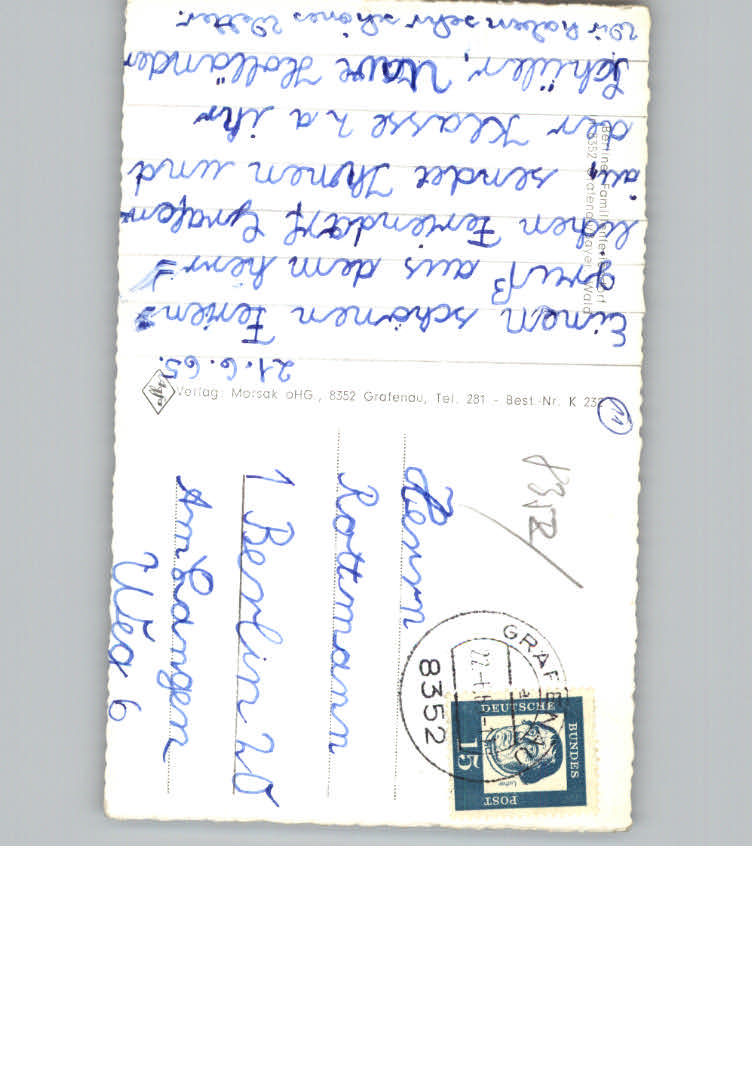 21.6.65.
Einen schönen Ferien=
gruß aus dem herr=
lichen Feriendorf Grafen=
au, sendet Ihnen und
der Klasse 2a ihr
Schüler, Uwe Holländer
Wir haben sehr schönes Wetter.
Berliner Familienferiendorf
8352 Grafenau/Bayer. Wald
Verlag: Morsak oHG., 8352 Grafenau, Tel. 281 - Best.-Nr. K 232
11
Herrn
Rottmann
1 Berlin 20
Am Langen
Weg 6
8352
GRAFENAU
8352
DEUTSCHE
BUNDES
POST
15
Luther